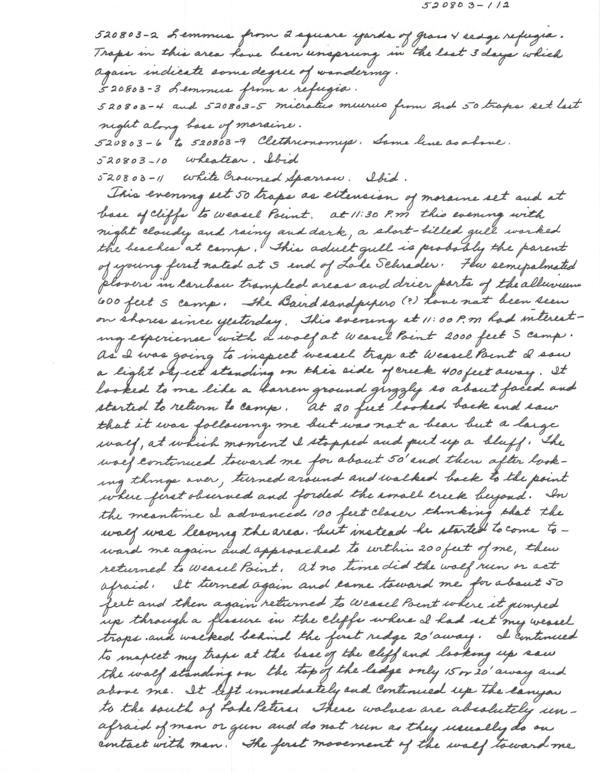 520803-112
520803-2 Lemmus from 2 square yards of grass & sedge refugia.
Traps in this area have been unsprung in the last 3 days which
again indicate some degree of wandering.
520803-3 Lemmus from a refugia.
520803-4 and 520803-5 microtus muerus from 2nd 50 traps set last
night along base of moraine.
520803-6 to 520803-9 Clethrionomys. Same line as above.
520803-10 wheatear. Ibid
520803-11 White Crowned Sparrow. Ibid.
This evening set 50 traps as extension of moraine set and at
base of cliffs to Weasel Point. at 11:30 P.M this evening with
night cloudy and rainy and dark, a short-billed gull worked
the beaches at camp. This adult gull is probably the parent
of young first noted at S end of Lake Schrader. Few semipalmated
plovers in caribou trampled areas and drier parts of the alluvium
600 feet S camp. The Baird sandpipers (?) have not been seen
on shores since yesterday. This evening at 11:00 P.M had interest-
ing experience with a wolf at Weasel Point 2000 feet S camp.
As I was going to inspect weasel trap at Weasel Point I saw
a light object standing on this side of creek 400 feet away. It
looked to me like a barren ground grizzly so about faced and
started to return to camp. At 20 feet looked back and saw
that it was following me but was not a bear but a large
wolf, at which moment I stopped and put up a bluff. The
wolf continued toward me for about 50' and then after look-
ing things over, turned around and walked back to the point
where first observed and forded the small creek beyond. In
the meantime I advanced 100 feet closer thinking that the
wolf was leaving the area. but instead he started to come to-
ward me again and approached to within 200 feet of me, then
returned to Weasel Point. At no time did the wolf run or act
afraid. It turned again and came toward me for about 50
feet and then again returned to Weasel Point where it jumped
up through a fissure in the cliffs where I had set my weasel
traps and walked behind the first redge 20' away. I continued
to inspect my traps at the base of the cliff and looking up saw
the wolf standing on the top of the ledge only 15 or 20' away and
above me. It left immediately and continued up the canyon
to the south of Lake Peters. These wolves are absolutely un-
afraid of man or gun and do not run as they usually do on
contact with man. The first movement of the wolf toward me